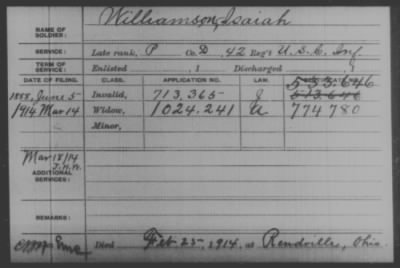 Williamson, Isaiah
NAME OF SOLDIER:
SERVICE: Late rank, P Co. D, 42 Reg't U.S.C. Inf.
TERM OF SERVICE: Enlisted , 1 Discharged , 1
DATE OF FILING. CLASS. APPLICATION NO. LAW. CERTIFICATE NO.
573.646
1888, June 5 Invalid, 713,365 J 573.646
1914 Mar 14 Widow, 1024.241 U 774780
Minor,
Mar 18/14
ADDITIONAL SERVICES:
REMARKS:
Died Feb 25, 1914, at Rendville, Ohio.